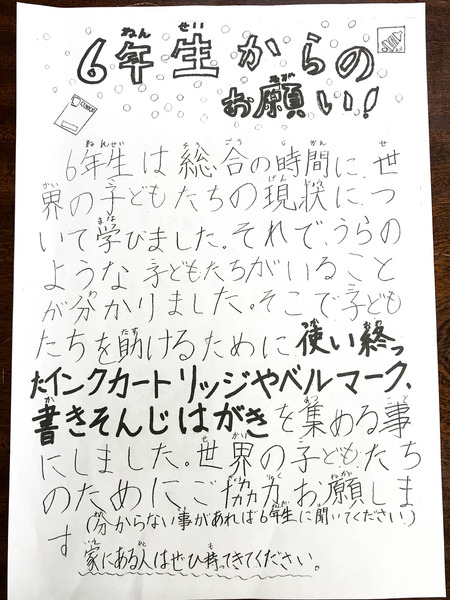 6年生からの
お願い!
6年生は総合の時間に、世
界の子どもたちの現状に、つ
いて学びました。それで、うらの
ような子どもたちがいること
が分かりました。そこで子ども
たちを助けるために使い終っ
たインクカートリッジやベルマーク、
書きそんじはがきを集める事
にしました。世界の子どもたち
のためにご協力お願いしま
す(分からない事があれば6年生に聞いてください)
家にある人はぜひ持ってきてください。